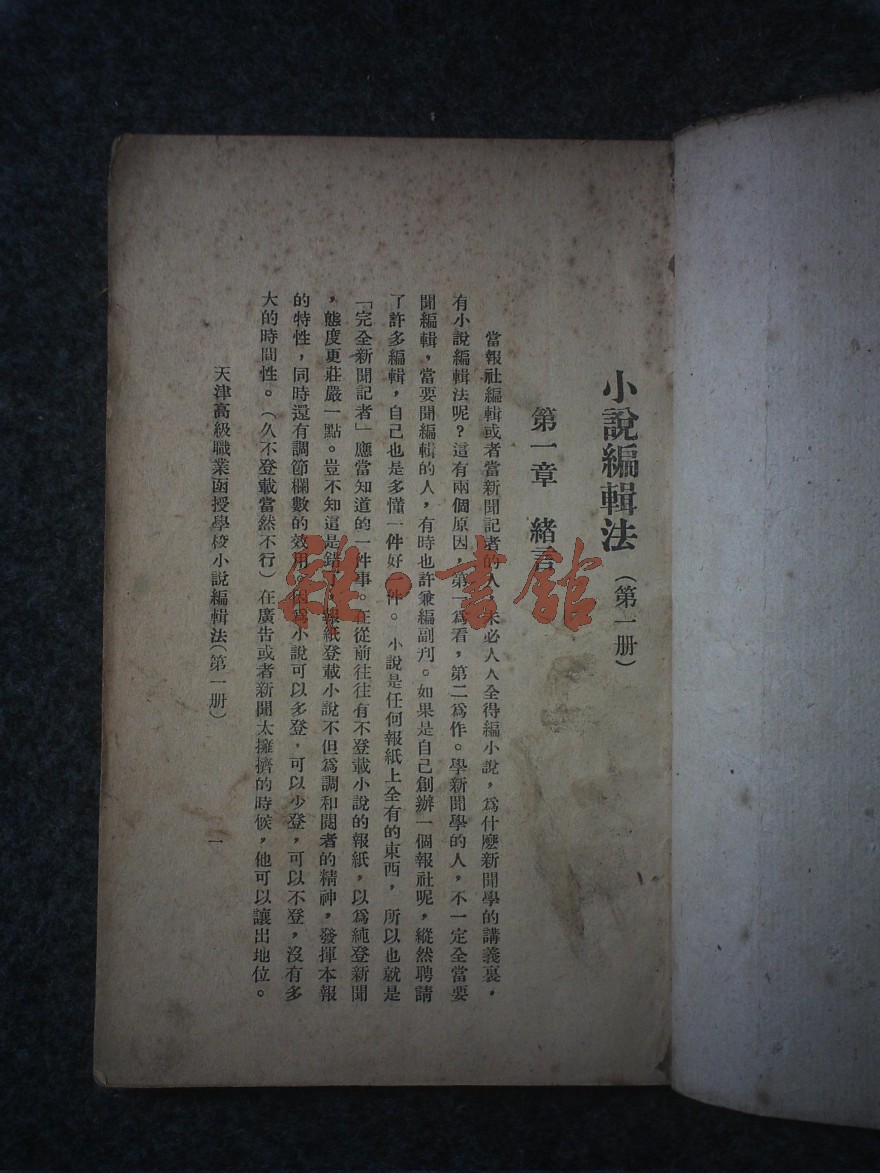 小說編輯法(第一册)
第一章 緒言
當報社編輯或者當新聞記者的人,未必人人全得編小說,爲什麽新聞學的講義裏,
有小說編輯法呢?這有兩個原因,第一爲看,第二爲作。學新聞學的人,不一定全當要
聞編輯,當要聞編輯的人,有時也許兼編副刋。如果是自己創辦一個報社呢,縱然聘請
了許多編輯,自己也是多懂一件好一件。小說是任何報紙上全有的東西,所以也就是
「完全新聞記者」應當知道的一件事。在從前往往有不登載小說的報紙,以爲純登新聞
,態度更莊嚴一點。豈不知這是錯了,報紙登載小說不但爲調和閱者的精神,發揮本報
的特性,同時還有調節欄數的效用。因爲小說可以多登,可以少登,可以不登,沒有多
大的時間性。(久不登載當然不行)在廣告或者新聞太擁擠的時候,他可以讓出地位。
天津高級職業函授學校小說編輯法(第一册)
一
雜·書館